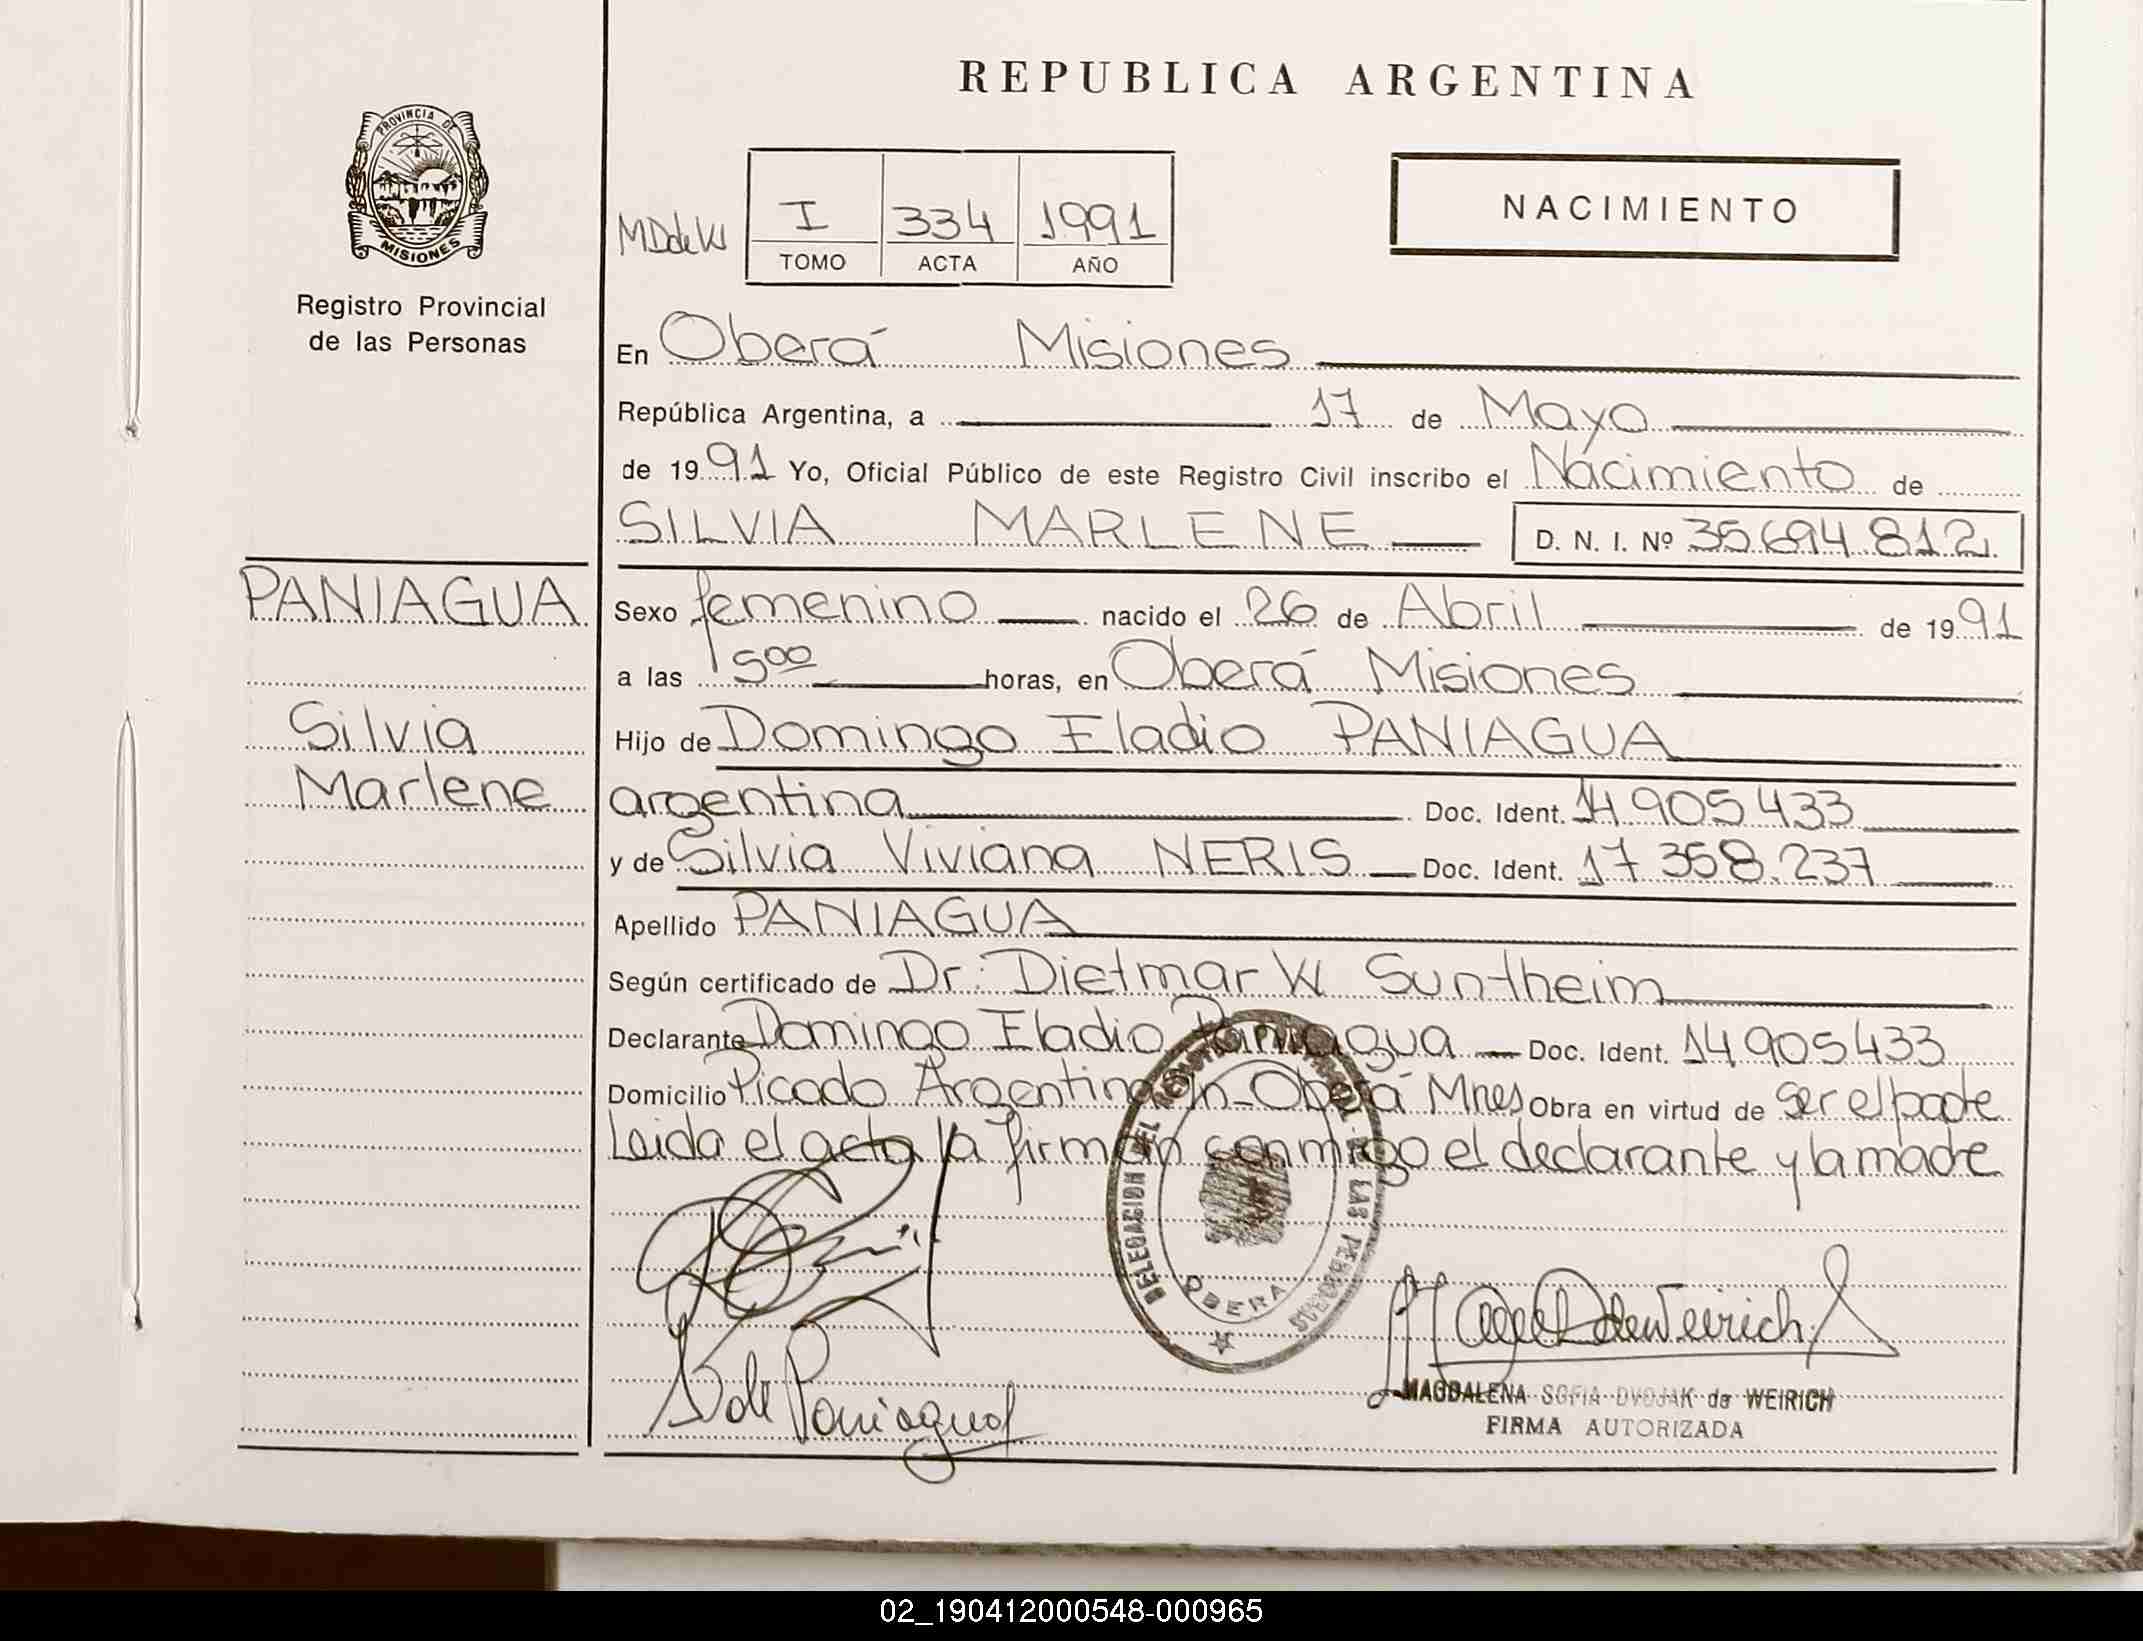 REPUBLICA ARGENTINA
PROVINCIA DE
MISIONES
Registro Provincial
de las Personas
MDdeW
I 334 1991
TOMO ACTA AÑO
NACIMIENTO
En Oberá Misiones
República Argentina, a 17 de Mayo
de 1991 Yo, Oficial Público de este Registro Civil inscribo el Nacimiento de
SILVIA MARLENE D. N. I. Nº 35 694 812
PANIAGUA
Silvia
Marlene
Sexo femenino nacido el 26 de Abril de 1991
a las 5⁰⁰ horas, en Oberá Misiones
Hijo de Domingo Eladio PANIAGUA
argentina Doc. Ident. 14 905 433
y de Silvia Viviana NERIS Doc. Ident. 17 358.237
Apellido PANIAGUA
Según certificado de Dr. Dietmar W Suntheim
Declarante Domingo Eladio Paniagua Doc. Ident. 14 905 433
Domicilio Picada Argentina Oberá Mnes Obra en virtud de ser el padre
Leida el acta la firman conmigo el declarante y la madre
DELEGACION DEL LAS PERSONAS
OBERA
S de Paniagua
MAGDALENA SOFIA DVOJAK de WEIRICH
FIRMA AUTORIZADA
02_190412000548-000965